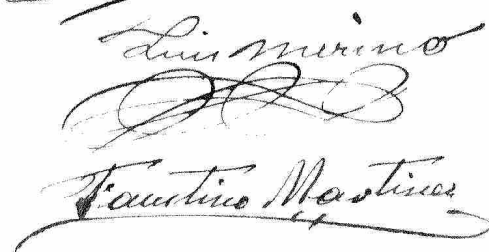 Luis Merino
Faustino Martinez